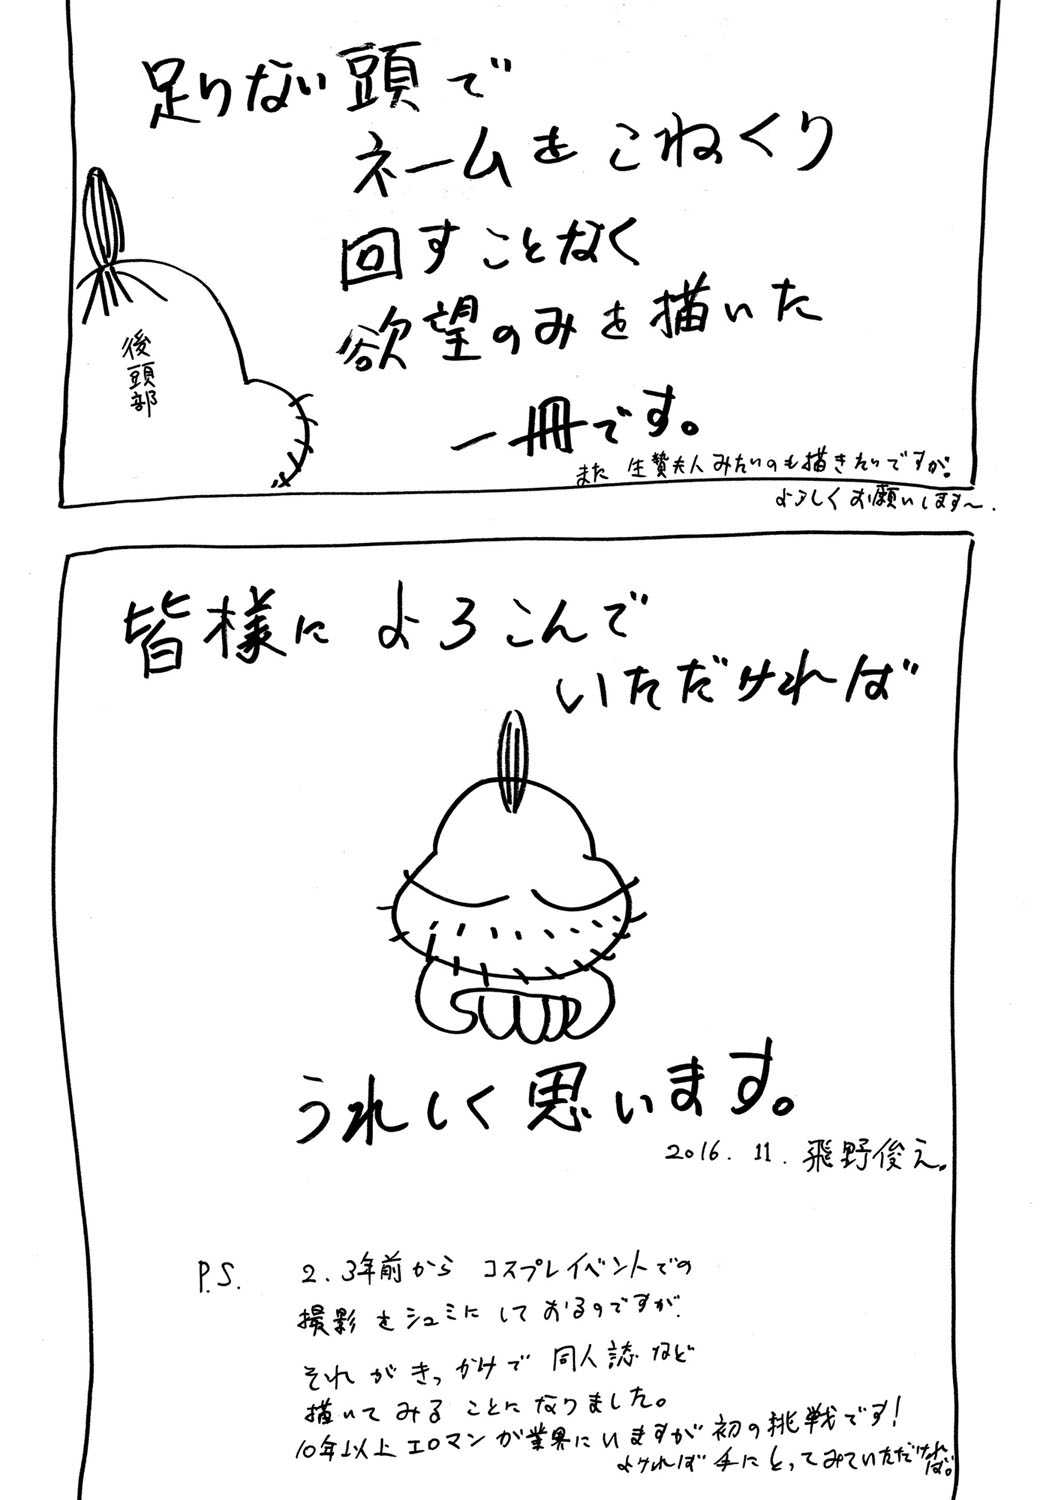 足りない頭で
ネームをこねくり
回すことなく
欲望のみを描いた
一冊です。
また 生贄夫人みたいのも描きたいですが。
よろしくお願いします〜.
後頭部
皆様に よろこんで
いただければ
うれしく思います。
2016.11. 飛野俊之。
P.S. 2.3年前から コスプレイベントでの
撮影をシュミにしておるのですが、
それがきっかけで 同人誌など
描いてみることになりました。
10年以上エロマンガ業界にいますが初の挑戦です!
よければ手にとってみていただければ。